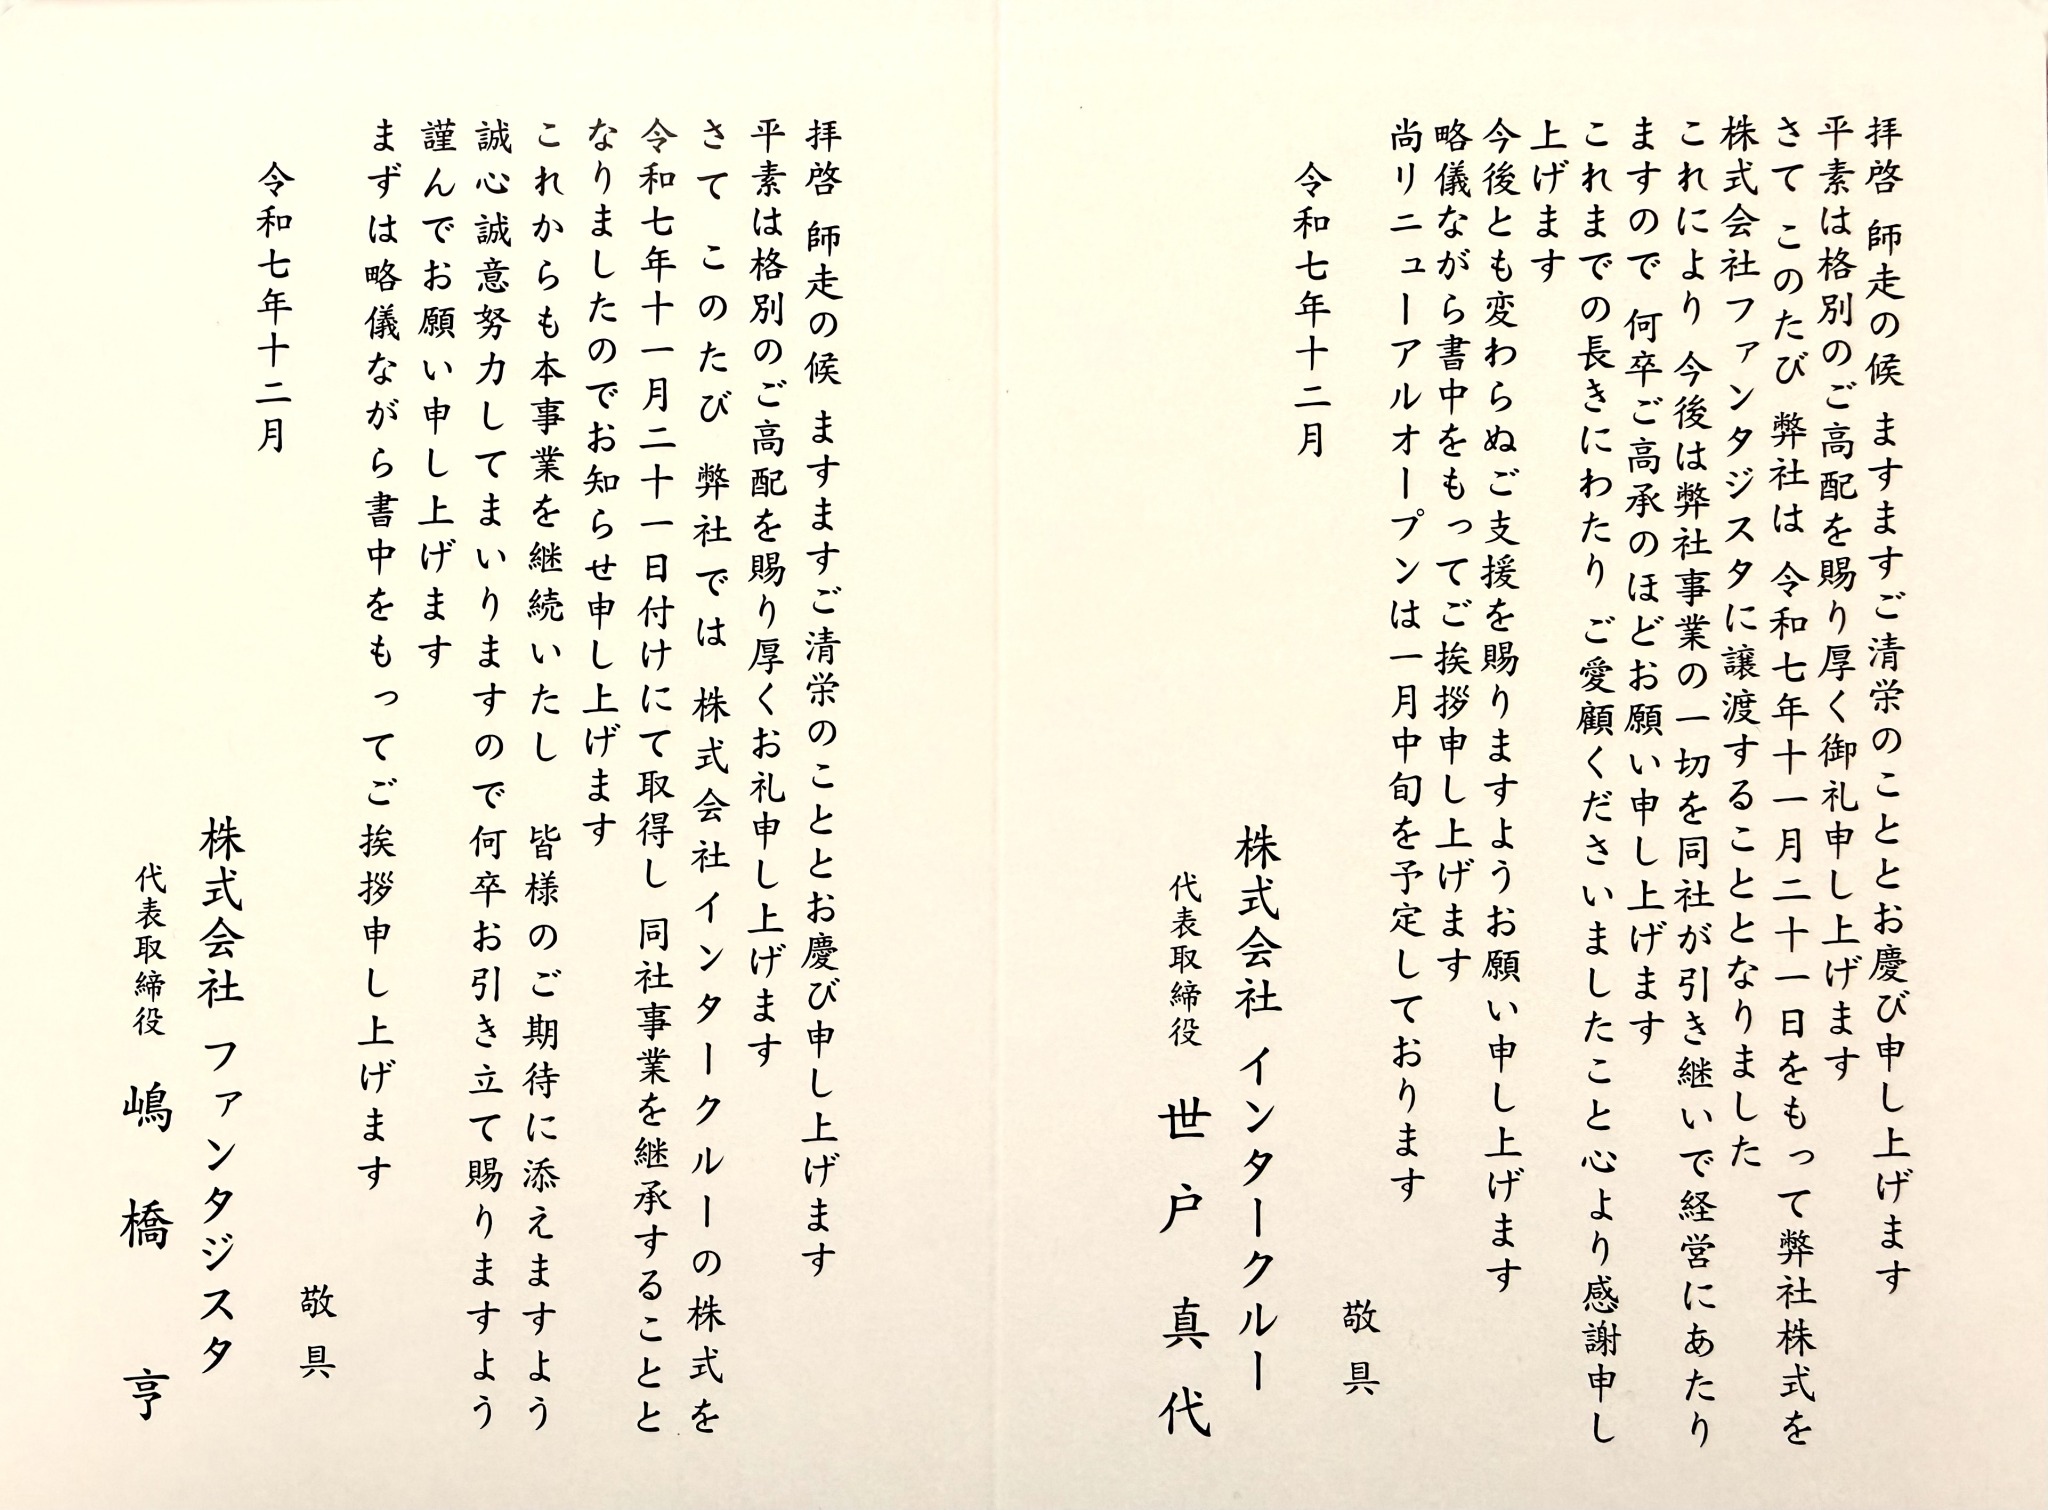 拝啓 師走の候 ますますご清栄のこととお慶び申し上げます
平素は格別のご高配を賜り厚く御礼申し上げます
さて このたび 弊社は 令和七年十一月二十一日をもって弊社株式を
株式会社ファンタジスタに譲渡することとなりました
これにより 今後は弊社事業の一切を同社が引き継いで経営にあたり
ますので 何卒ご高承のほどお願い申し上げます
これまでの長きにわたり ご愛顧くださいましたこと心より感謝申し
上げます
今後とも変わらぬご支援を賜りますようお願い申し上げます
略儀ながら書中をもってご挨拶申し上げます
尚リニューアルオープンは一月中旬を予定しております
敬具
令和七年十二月
株式会社 インタークルー
代表取締役 世戸 真代
拝啓 師走の候 ますますご清栄のこととお慶び申し上げます
平素は格別のご高配を賜り厚くお礼申し上げます
さて このたび 弊社では 株式会社インタークルーの株式を
令和七年十一月二十一日付けにて取得し 同社事業を継承することと
なりましたのでお知らせ申し上げます
これからも本事業を継続いたし 皆様のご期待に添えますよう
誠心誠意努力してまいりますので何卒お引き立て賜りますよう
謹んでお願い申し上げます
まずは略儀ながら書中をもってご挨拶申し上げます
敬具
令和七年十二月
株式会社 ファンタジスタ
代表取締役 嶋橋 亨